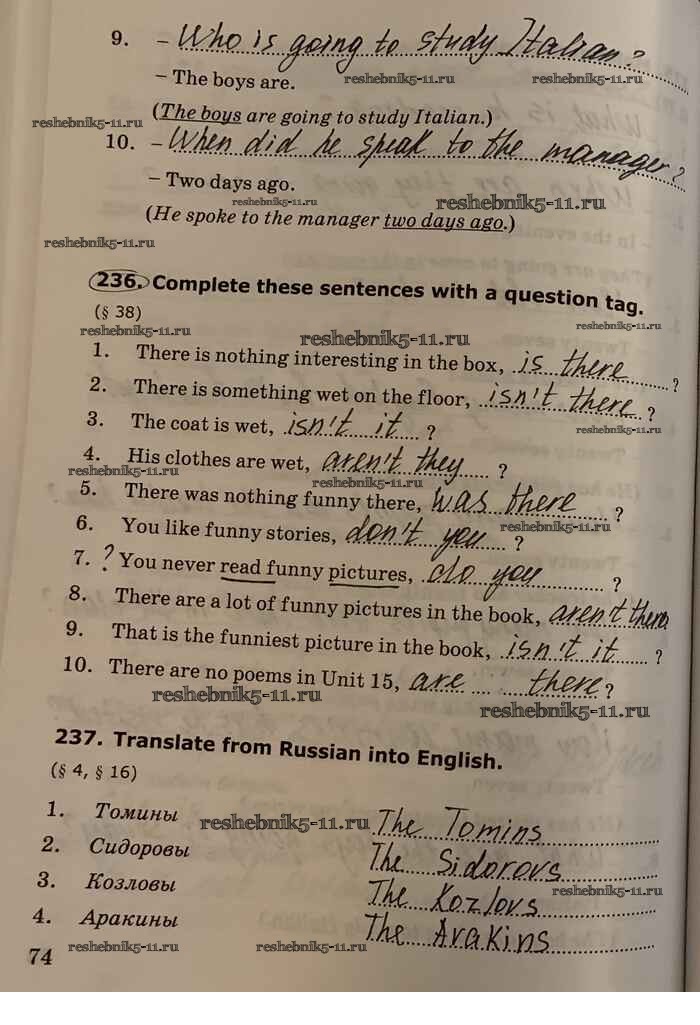 9. – Who is going to study Italian?
– The boys are.
reshebnik5-11.ru reshebnik5-11.ru
reshebnik5-11.ru
(The boys are going to study Italian.)
10. – When did he speak to the manager?
– Two days ago.
reshebnik5-11.ru reshebnik5-11.ru
(He spoke to the manager two days ago.)
reshebnik5-11.ru
236. Complete these sentences with a question tag.
(§ 38)
reshebnik5-11.ru reshebnik5-11.ru reshebnik5-11.ru
1. There is nothing interesting in the box, is there?
2. There is something wet on the floor, isn't there?
3. The coat is wet, isn't it?
reshebnik5-11.ru
4. His clothes are wet, aren't they?
reshebnik5-11.ru reshebnik5-11.ru
5. There was nothing funny there, was there?
reshebnik5-11.ru
6. You like funny stories, don't you?
7. ? You never read funny pictures, do you?
8. There are a lot of funny pictures in the book, aren't there
9. That is the funniest picture in the book, isn't it?
10. There are no poems in Unit 15, are there?
reshebnik5-11.ru reshebnik5-11.ru
237. Translate from Russian into English.
(§ 4, § 16)
1. Томины The Tomins
reshebnik5-11.ru
2. Сидоровы The Sidorovs
3. Козловы The Kozlovs
reshebnik5-11.ru
4. Аракины The Arakins
74 reshebnik5-11.ru reshebnik5-11.ru